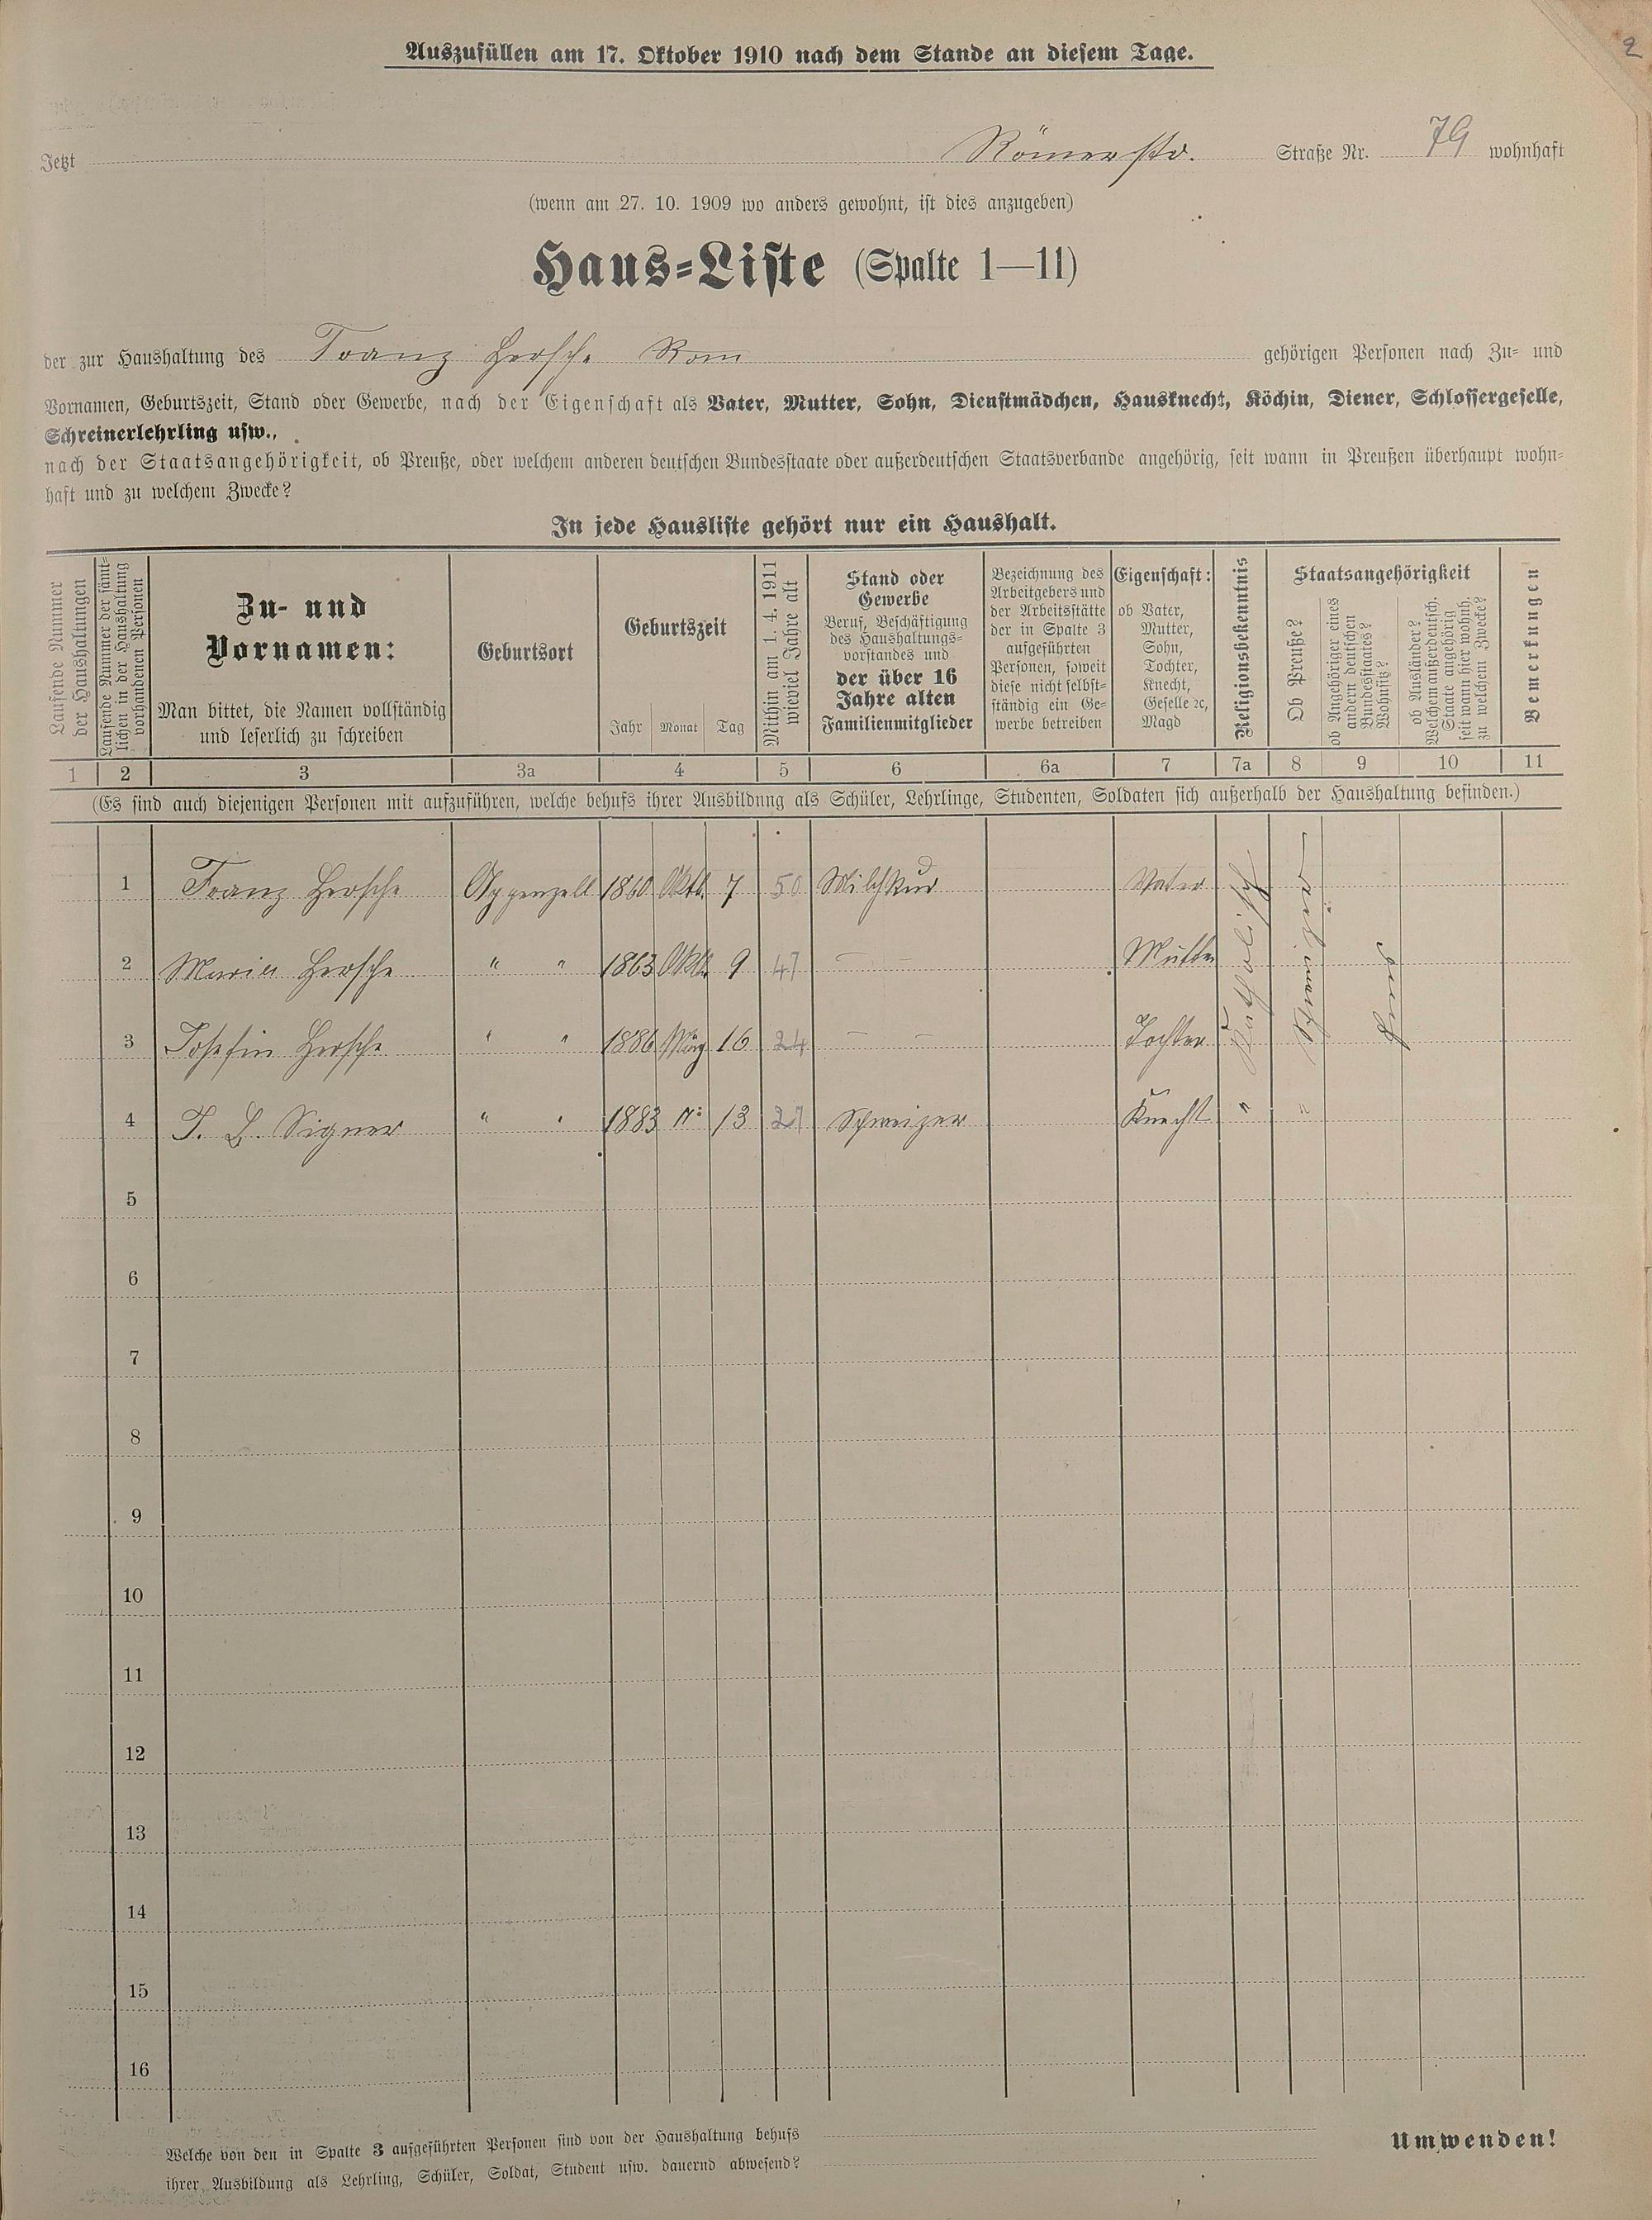 Auszufüllen am 17. Oktober 1910 nach dem Stande an diesem Tage.
2
Jetzt Römerstr. Straße Nr. 79 wohnhaft
(wenn am 27. 10. 1909 wo anders gewohnt, ist dies anzugeben)
Haus=Liste (Spalte 1—11)
der zur Haushaltung des Franz Hersche Rom gehörigen Personen nach Zu= und
Vornamen, Geburtszeit, Stand oder Gewerbe, nach der Eigenschaft als Vater, Mutter, Sohn, Dienstmädchen, Hausknecht, Köchin, Diener, Schlossergeselle,
Schreinerlehrling usw.,
nach der Staatsangehörigkeit, ob Preuße, oder welchem anderen deutschen Bundesstaate oder außerdeutschen Staatsverbande angehörig, seit wann in Preußen überhaupt wohn=
haft und zu welchem Zwecke?
In jede Hausliste gehört nur ein Haushalt.
Laufende Nummer
der Haushaltungen
Laufende Nummer der sämt=
lichen in der Haushaltung
vorhandenen Personen
Zu- und
Vornamen:
Man bittet, die Namen vollständig
und leserlich zu schreiben
Geburtsort
Geburtszeit
Jahr Monat Tag
Mithin am 1. 4. 1911
wieviel Jahre alt
Stand oder
Gewerbe
Beruf, Beschäftigung
des Haushaltungs=
vorstandes und
der über 16
Jahre alten
Familienmitglieder
Bezeichnung des
Arbeitgebers und
der Arbeitsstätte
der in Spalte 3
aufgeführten
Personen, soweit
diese nicht selbst=
ständig ein Ge=
werbe betreiben
Eigenschaft:
ob Vater,
Mutter,
Sohn,
Tochter,
Knecht,
Geselle ꝛc,
Magd
Religionsbekenntnis
Staatsangehörigkeit
Ob Preuße?
ob Angehöriger eines
andern deutschen
Bundesstaates?
Wohnsitz?
ob Ausländer?
Welchem außerdeutsch.
Staate angehörig
seit wann hier wohnh.
zu welchem Zwecke?
Bemerkungen
1 2 3 3a 4 5 6 6a 7 7a 8 9 10 11
(Es sind auch diejenigen Personen mit aufzuführen, welche behufs ihrer Ausbildung als Schüler, Lehrlinge, Studenten, Soldaten sich außerhalb der Haushaltung befinden.)
1 Franz Hersche Appenzell 1860 Oktb. 7 50 Milchkur Vater
2 Maria Hersche " " 1863 Oktb. 9 47 — — Mutter
3 Josefin Hersche " " 1886 März 16 24 — — Tochter
Katholisch
4 J. B. Signer " " 1883 13 27 Schweizer Knecht " "
5
6
7
8
9
10
11
12
13
14
15
16
Welche von den in Spalte 3 aufgeführten Personen sind von der Haushaltung behufs
ihrer Ausbildung als Lehrling, Schüler, Soldat, Student usw. dauernd abwesend?
Umwenden!